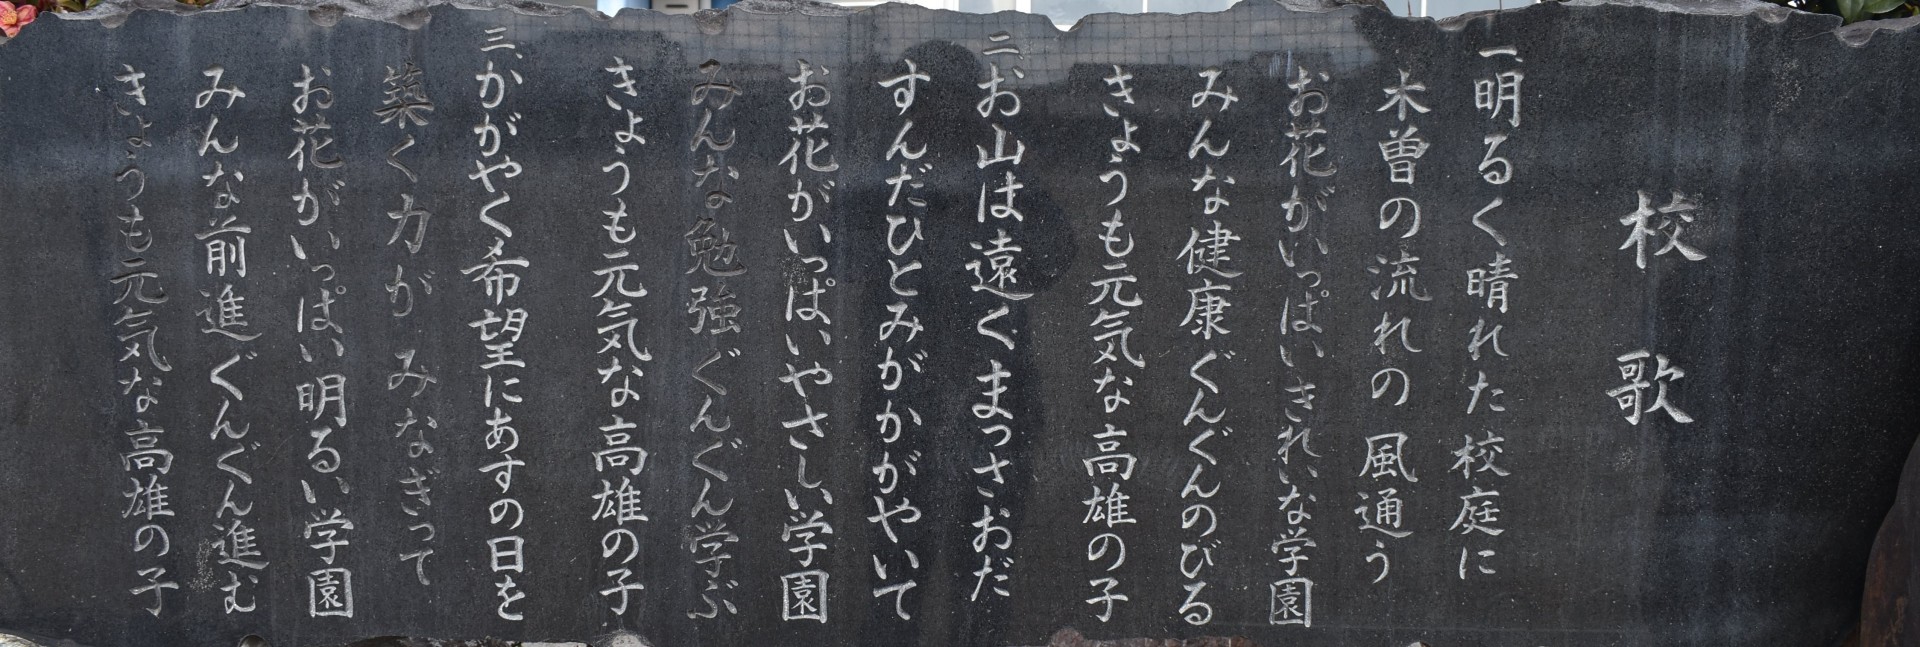 校歌
一、明るく晴れた校庭に
木曽の流れの風通う
お花がいっぱいきれいな学園
みんな健康ぐんぐんのびる
きょうも元気な高雄の子
二、お山は遠くまっさおだ
すんだひとみがかがやいて
お花がいっぱいやさしい学園
みんな勉強ぐんぐん学ぶ
きょうも元気な高雄の子
三、かがやく希望にあすの日を
築く力がみなぎって
お花がいっぱい明るい学園
みんな前進ぐんぐん進む
きょうも元気な高雄の子